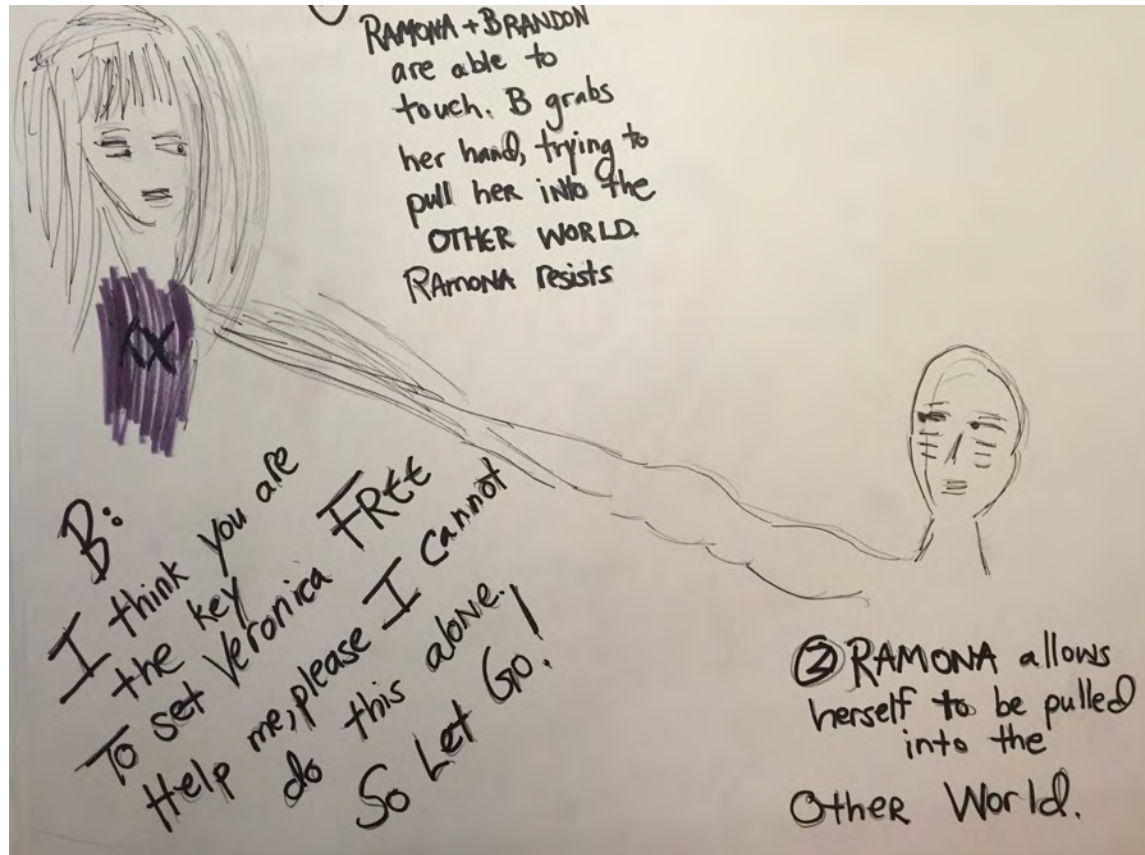 RAMONA + BRANDON
are able to
touch. B grabs
her hand, trying to
pull her into the
OTHER WORLD.
RAMONA resists
XX
B:
I think you are
the key
To set Veronica FREE
Help me, please I cannot
do this alone.
So Let Go!
② RAMONA allows
herself to be pulled
into the
Other World.